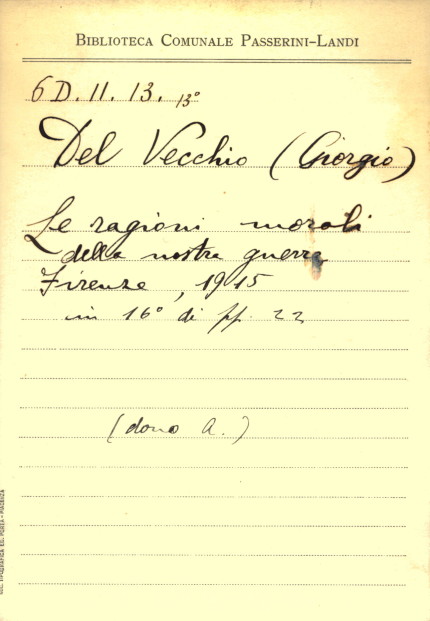 BIBLIOTECA COMUNALE PASSERINI-LANDI
6 D. II. 13. 13°
Del Vecchio (Giorgio)
Le ragioni morali
della nostra guerra
Firenze, 1915
in 16° di pp. 22
(dono A.)